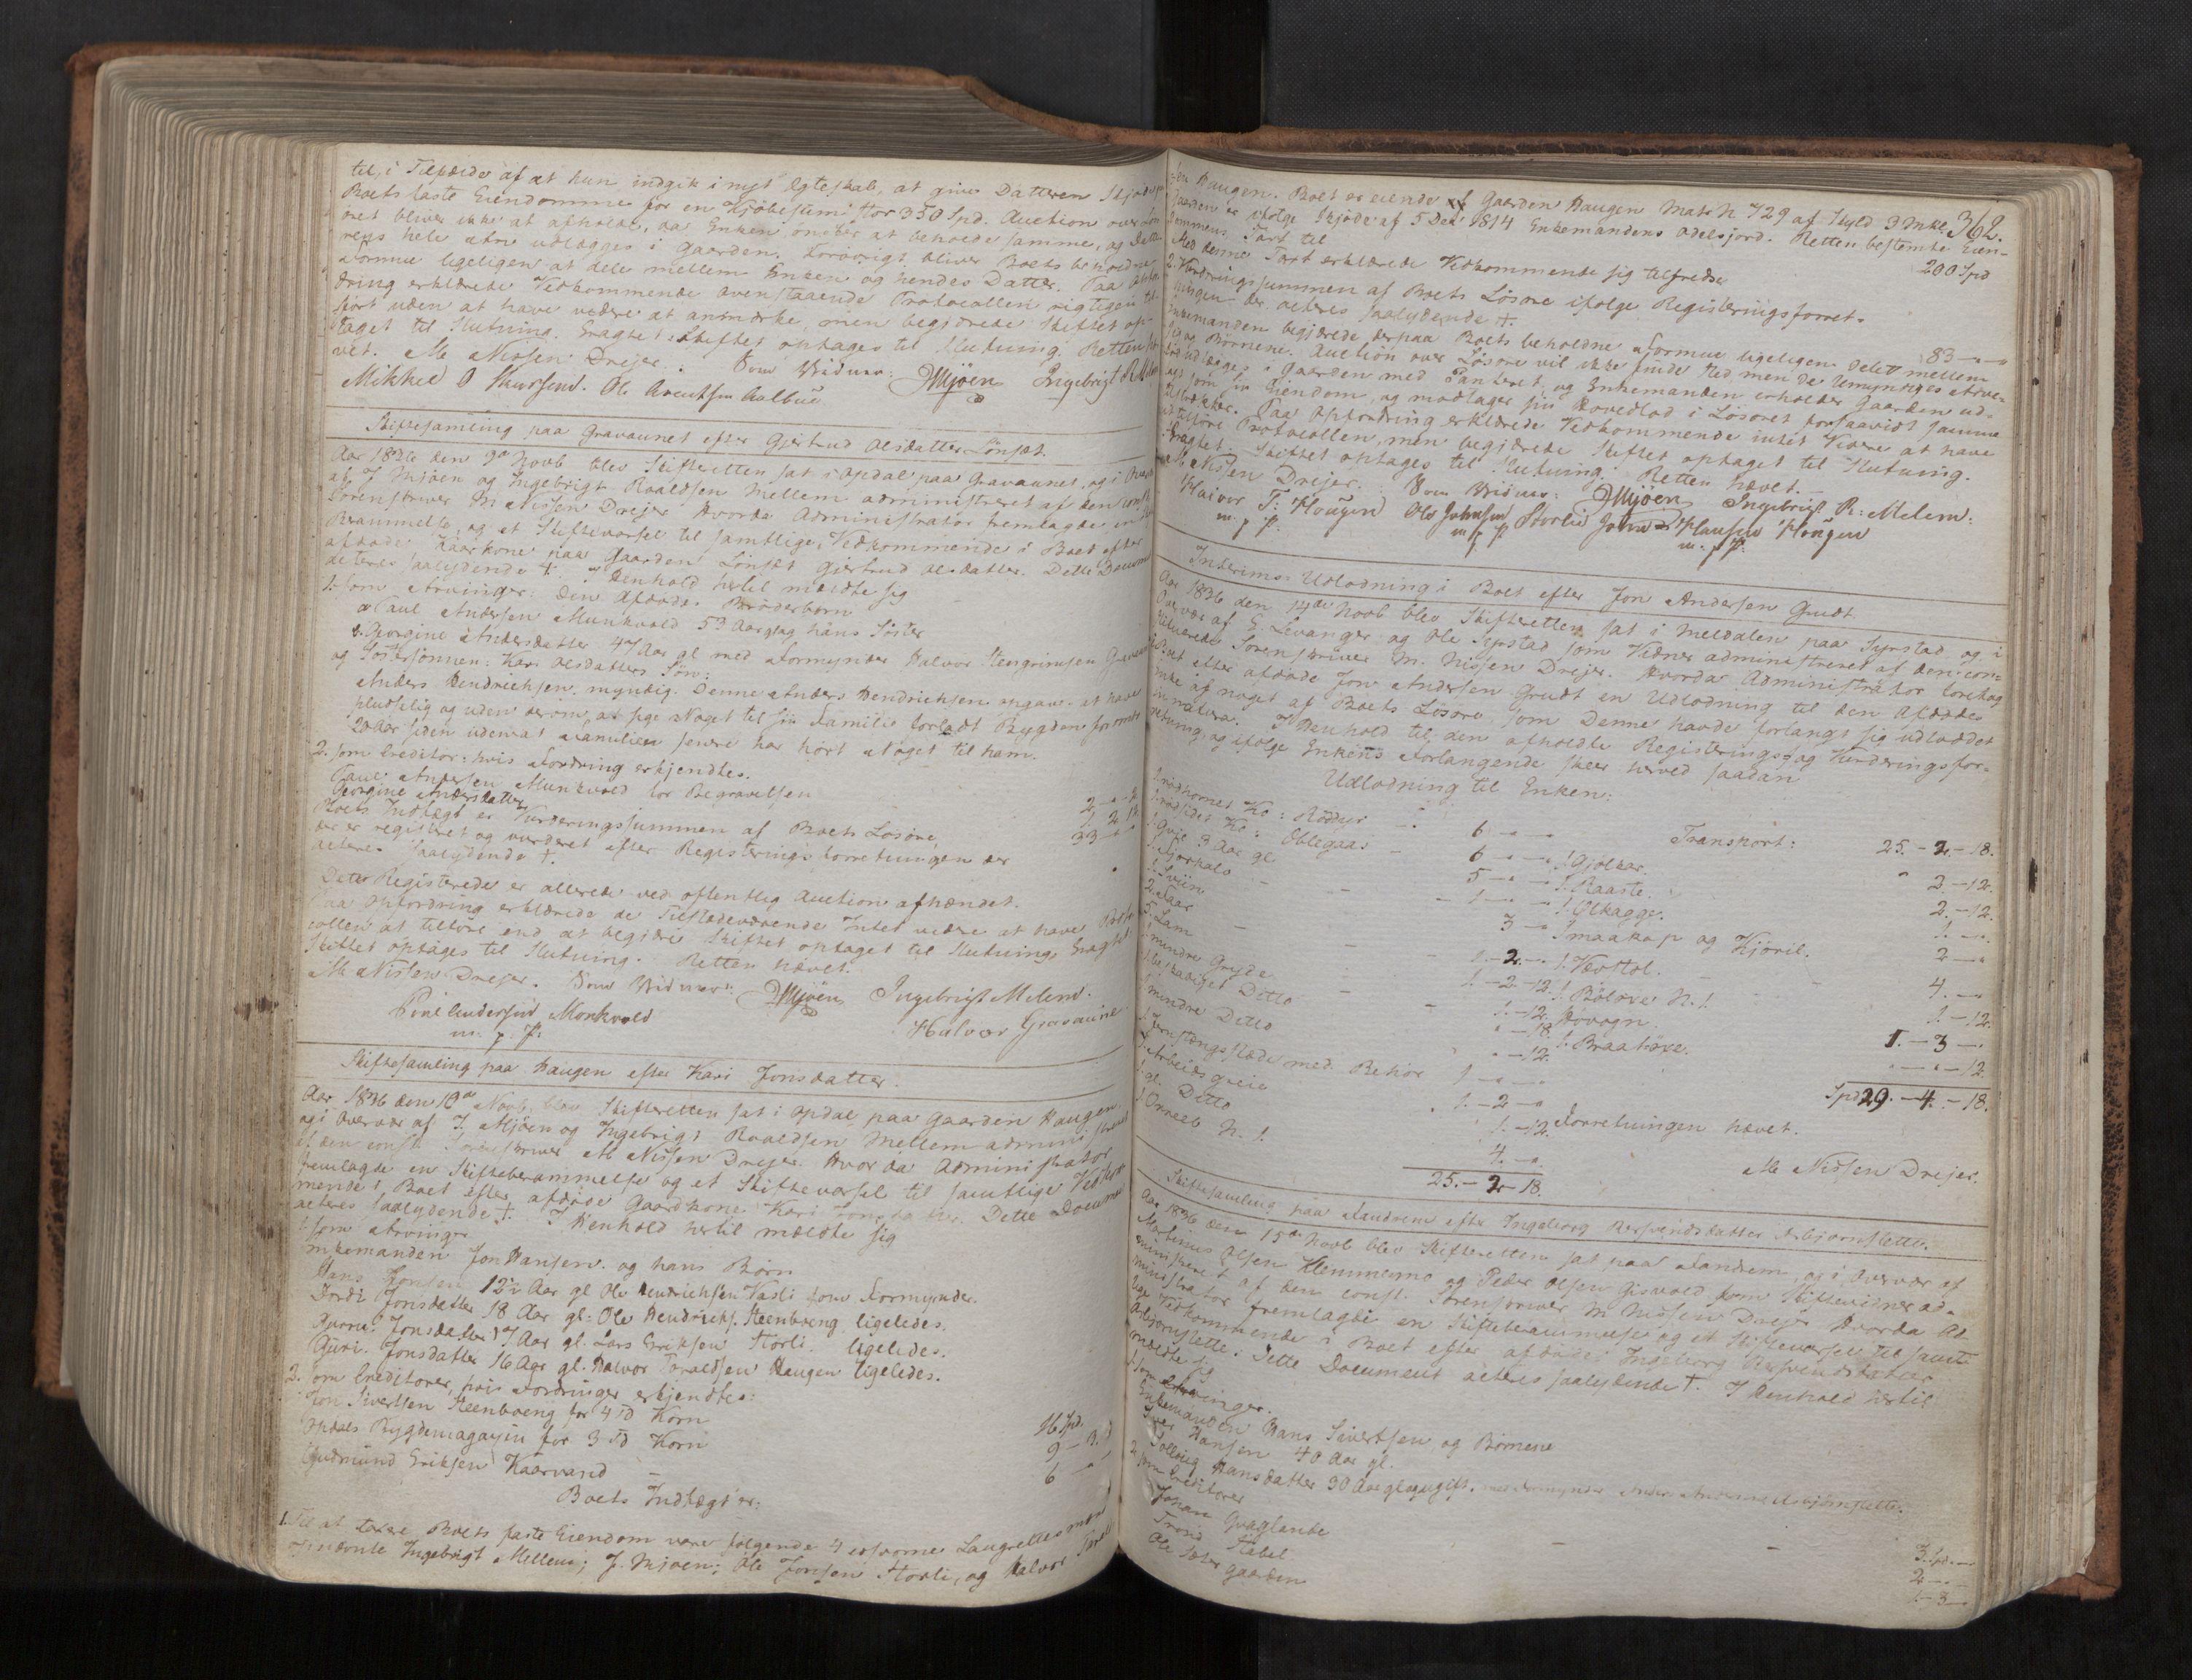 til, i Tilfælde af at hun indgik i nyt Egteskab, at give Datteren Skjøde
Boets faste Eiendomme for en Kjøbesum stor 350 Spd. Auction over Løs
øret bliver ikke at afholde, da Enken ønsker at beholde samme, og Datte
rens hele Arv udlægges i Gaarden. Forøvrigt bliver Boets beholdne
Formue ligeligen at dele mellem Enken og hendes Datter. Paa Opfor
dring erklærede Vedkommende ovenstaaende Protocollen rigtigen til
ført uden at have videre at anmærke, men begjærede Skiftet op
taget til Slutning. Eragtet: Skiftet optages til Slutning. Retten hæ
vet. M Nissen Drejer. Som Vidner: JMjöen Ingebrigt R Melem
Mikkel O Ole Arentsen Aalbue
Skiftesamling paa Gravaunet efter Gjertrud Olsdatter Lönset.
Aar 1836 den 9de Novb blev Skifteretten sat i Opdal paa Gravaunet, og i Overvær
af J Mjöen og Ingebrigt Roaldsen Mellem administreret af den const
Sorenskriver M Nissen Drejer. Hvorda Administrator fremlagde en Skifte
Berammelse, og et Skiftevarsel til samtlige Vedkommende i Boet efter
afdøde Kaarkone paa Gaarden Lönset Gjertrud Olsdatter. Dette Document
acteres saalydende +. I Henhold hertil meldte sig
1. som Arvinger: den Afdødes Brøderbørn
a Paul Andersen Munkvold 53 Aar og hans Söster
b. Georgine Andersdatter 47 Aar gl med Formynder Halvor Stengrimsen Gravaun
og Søstersønnen: Kari Olsdatters Søn:
Anders Hendrichsen, myndig. Denne Anders Hendrichsen opgav at have
pludselig og uden derom at sige Noget til sin Familie forladt Bygden for omtr
20 Aar siden uden at Familien senere har hørt Noget til ham.
2. som Creditor: hvis Fordring erkjendtes.
Paul Andersen Munkvold for Begravelsen
Georgine Andersdatter
Boets Indtægt er Vurderingssummen af Boets Løsøre,
der er registeret og vurderet efter Registeringsforretningen der
acteres saalydende +.
Dette Registerede er allerede ved offentlig Auction afhændet.
Paa Opfordring erklærede de Tilstedeværende Intet videre at have Proto
collen at tilføre end at begjære Skiftet optaget til Slutning. Eragtet
Skiftet optages til Slutning. Retten hævet.
M Nissen Drejer. Som Vidner: JMjöen Ingebrigt Melem.
Poul Andersen Monkvold Halvor Gravaune
m. p. P.
Skiftesamling paa Haugen efter Kari Jonsdatter.
Aar 1836 den 10de Novb. blev Skifteretten sat i Opdal paa Gaarden Haugen
og i Overvær af J. Mjöen og Ingebrigt Roaldsen Mellem administreret
af den const Sorenskriver M Nissen Drejer. Hvorda Administrator
fremlagde en Skifteberammelse og et Skiftevarsel til samtlige Vedkom
mende i Boet efter afdøde Gaardkone Kari Jonsdatter. Dette Document
acteres saalydende +. I Henhold hertil meldte sig
1. som Arvinger
Enkemanden Jon Hansen og hans Børn
Hans Jonsen 12½ Aar gl Ole Hendrichsen Vasli som Formynder.
Jordi Jonsdatter 18 Aar gl: Ole Hendrichs. Steenboeng ligeledes.
Jonsdatter 17 Aar gl. Lars Eriksen Storli ligeledes.
Guri. Jonsdatter 16 Aar gl. Halvor Toraldsen Haugen ligeledes.
2. som Creditorer, hvis Fordringer erkjendtes:
Jon Sivertsen Steenboeng for 4 Td Korn 16 Spd.
Opdals Bygdemagazin for 3 Td Korn 9 - 3.
Gudmund Eriksen Kaarvand 6 - -
Boets Indtægt er:
1. Til at taxere Boets faste Eiendom vare følgende 4 edsvorne Laugrettesmænd
udnævnte Ingebrigt Mellem; J. Mjöen; Ole Jonsen Storli, og Halvor Toral
362.
sen Haugen. Boet er eiende af Gaarden Haugen Matr N 729 af Skyld 3 Mkl.
Gaarden er ifølge Skjøde af 5 Decr 1814 Enkemandens Odelsjord. Retten bestemte Eien-
dommens Taxt til 200 Spd
Med denne Taxt erklærede Vedkommende sig tilfredse
2. Vurderingssummen af Boets Løsøre ifølge Registeringsforret-
ningen der acteres saalydende +. 83 - -
Enkemanden begjærede derpaa Boets beholdne Formue ligeligen delet mellem
sig og Børnene. Auction over Løsøre vil ikke finde Sted, men de Umyndiges Arve-
lod udlægges i Gaarden med Panteret, og Enkemanden beholder Gaarden ud-
lagt som sin Eiendom, og modtager sin Hovedlod i Løsøret forsaavidt samme
tilstrækker. Paa Opfordring erklærede Vedkommende intet Videre at have
at tilføre Protocollen, men begjærede Skiftet optaget til Slutning.
Eragtet Skiftet optages til Slutning. Retten hævet.
M Nissen Drejer. Som Vidner: JMjöen Ingebrigt R: Melem:
Halvor T: Hougen Ole Johnsen Storlie John Hansen Hougen
m. p P. m p P m. p P.
Interims Udlodning i Boet efter Jon Andersen Grudt.
Aar 1836 den 14de Novb blev Skifteretten sat i Meldalen paa Syrstad og i
Overvær af E. Levanger og Ole Syrstad som Vidner administreret af den con-
stituerede Sorenskriver M. Nissen Drejer. Hvorda Administrator foretog
i Boet efter afdøde Jon Andersen Grudt en Udlodning til den Afdødes
Enke af noget af Boets Løsøre, som Denne havde forlangt sig udloddet
in natura. I Henhold til den afholdte Registerings- og Vurderingsfor-
retning, og ifølge Enkens Forlangende skeer herved saadan
Udlodning til Enken:
1 rødhornet Ko: Röddur 6 - -
1 rødsidet Ko: Öblegaas 6 - -
1 Qvie 3 Aar gl 5 - -
1 1 - -
1 Sviin 3 -
2 Faar 1. - 2. -
5 Lam 1. - 2. - 12.
1 mindre Gryde 1. - 12.
1 beskadiget Ditto - 18.
1 mindre Ditto - 12.
1 med Behør 1 - -
1 Arbeidsgreie 1. - 2 -
1 gl. Ditto 1. - 12.
1 Orreeb N. 1. 4. -
25. - 2 - 18.
Transport: 25. - 2. - 18.
1 3. - 12.
1 Raaste. 2. - 12.
1 Ölkagge. 1. -
Smaakop og Kjøril. 2 -
1 Vævstol. 4. -
1 N. 1. 1. - 12.
Høvogn 1. - 3 -
1 - - 12.
Spd 29. - 4. - 18.
Forretningen hævet.
M Nissen Drejer.
Skiftesamling paa Fandrem efter Ingeborg Asbjørnslette.
Aar 1836 den 15de Novb blev Skifteretten sat paa Fandrem, og i Overvær af
Martinus Olsen Klemmemo og Peder Olsen Gisvold som Skiftevidner ad-
ministreret af den const. Sorenskriver M Nissen Drejer Hvorda Ad-
ministrator fremlagde en Skifteberammelse og et Skiftevarsel til samt-
lige Vedkommende i Boet efter afdøde Ingeborg
Asbjørnslette. Dette Document acteres saalydende +. I Henhold hertil
meldte sig
1. som Arvinger.
Enkemanden Hans Sivertsen, og Børnene
Iver Hansen 40 Aar gl.
Hansdatter 30 Aar gl ugift.
2. som Creditorer
Johan 3. Spd. -
Trond Stabel 2 - -
Ole Sætergaarden 1. - 3 -